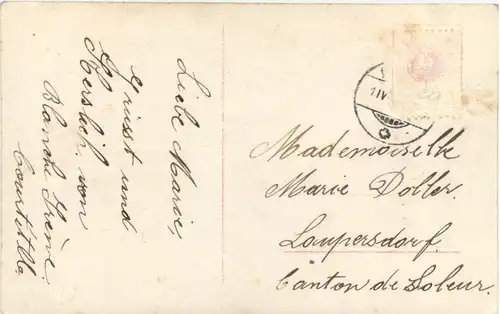 Liebe Marie,
Grüsst und
Herzlich von
Blanche Irène
Courtételle
Mademoiselle
Marie Doller.
Laupersdorf.
Canton de Soleur.
1 IV